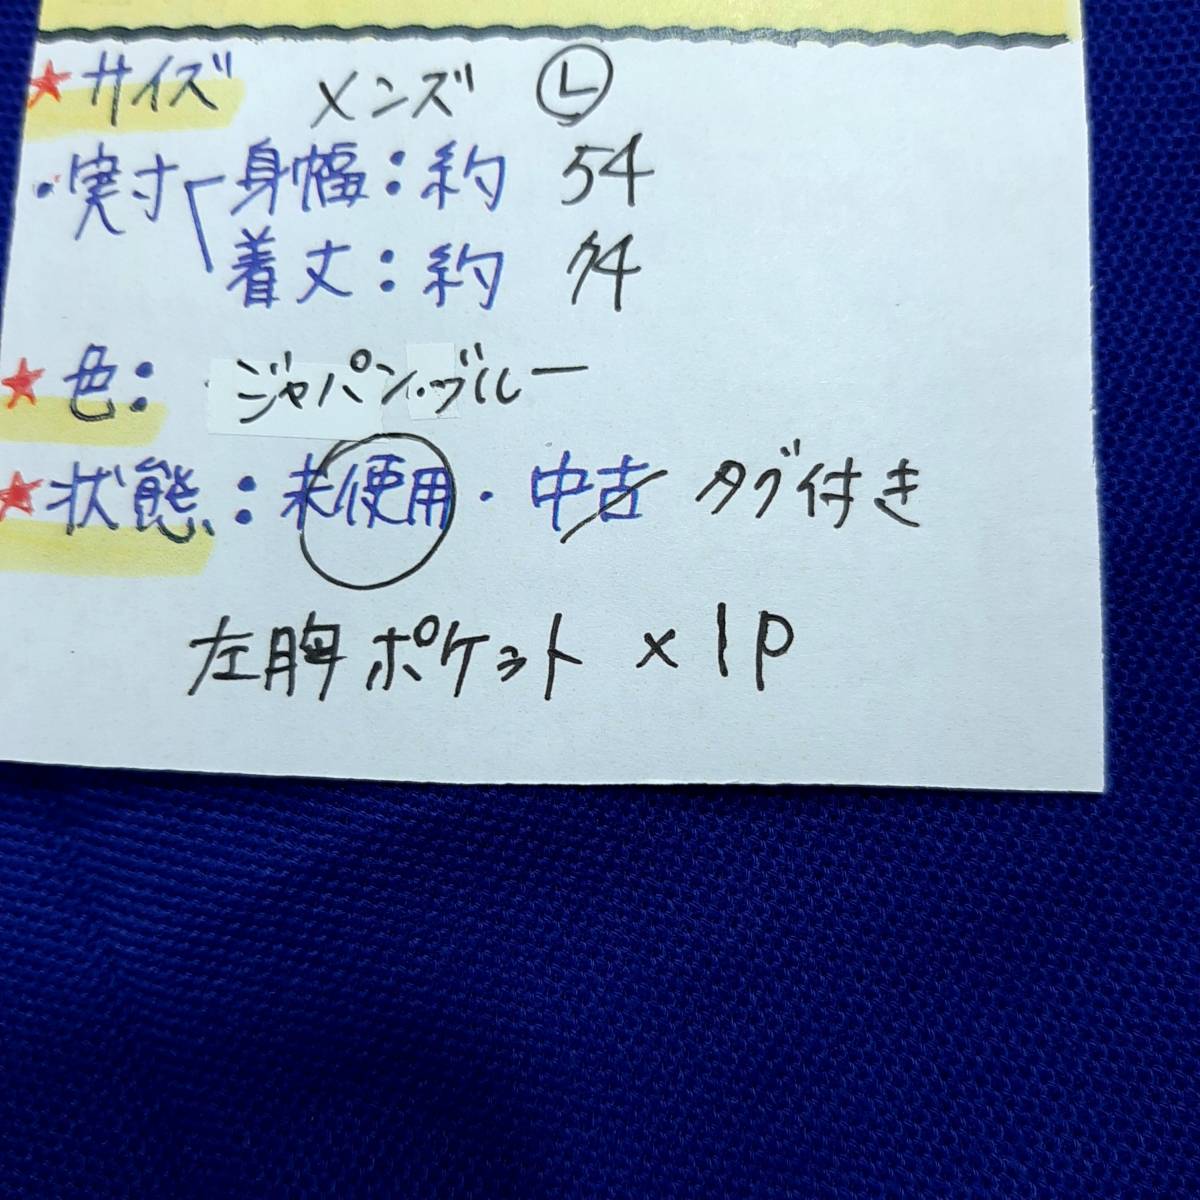 ★サイズ メンズ Ⓛ
・実寸 身幅：約 54
着丈：約 74
★色： ジャパン・ブルー
★状態：未使用・中古 タグ付き
左胸ポケット ×1P